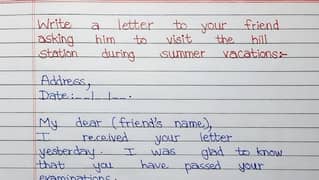 Write a letter to your friend
asking him to visit the hill
station during summer vacations:-
Address,
Date:--/--/--.
My dear (friend's name),
I received your letter
yesterday. I was glad to know
that you have passed your
examinations.